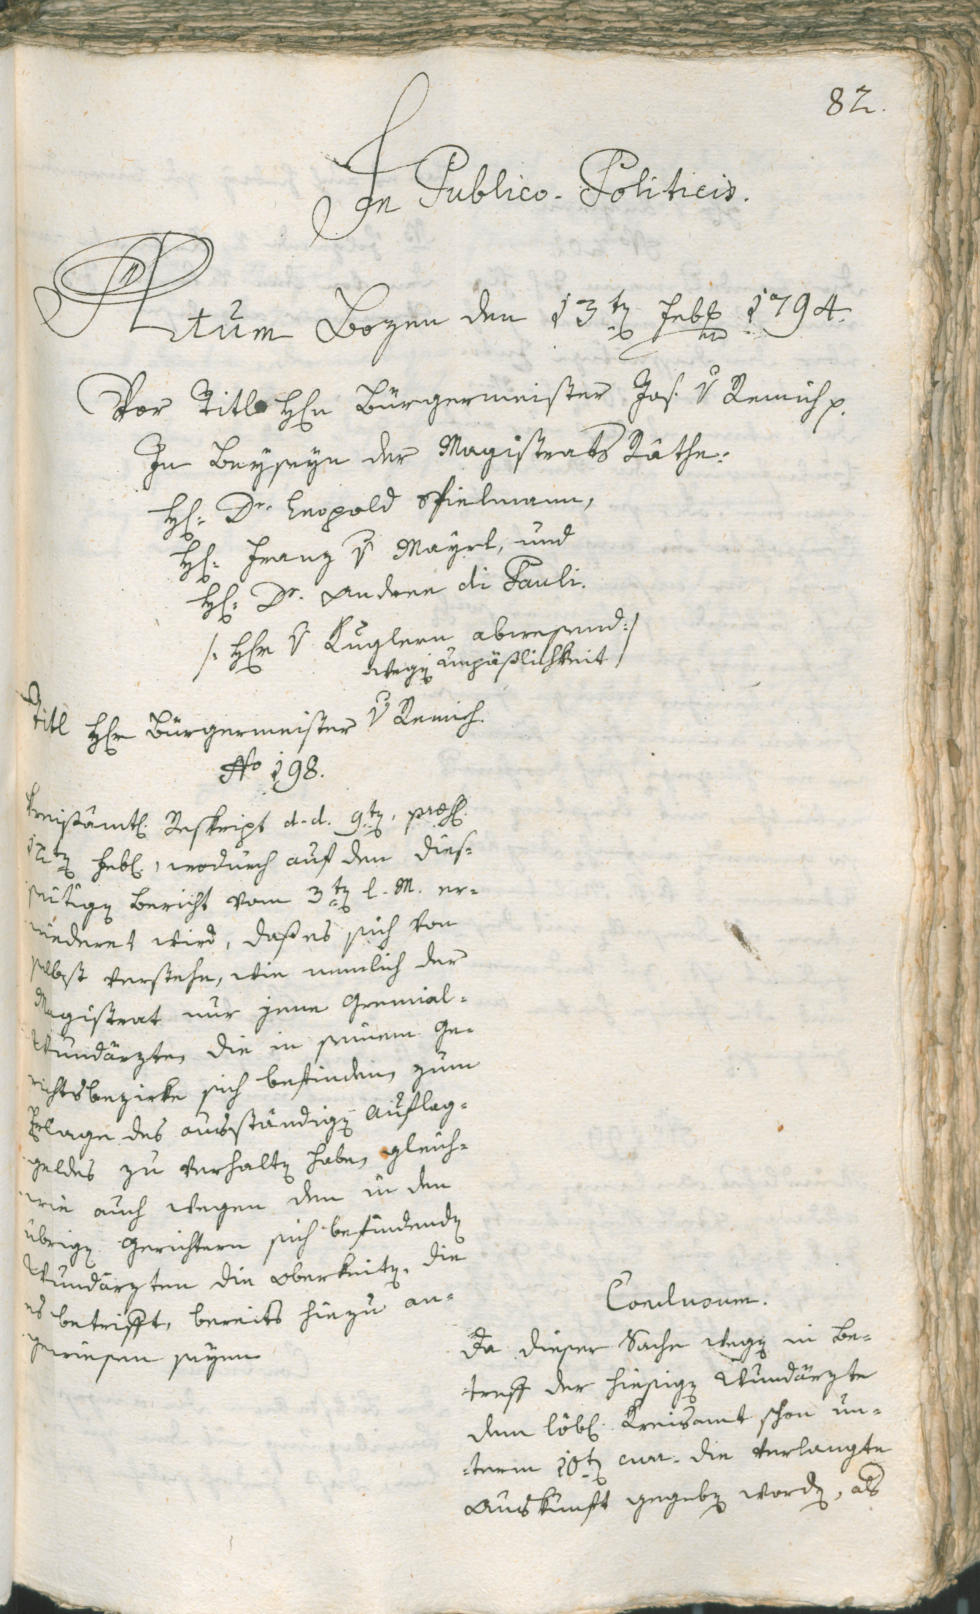 82.
In Publico-Politicis.
Actum Bozen den 13tn Febr 1794.
Vor Titl Hrn Bürgermeister Jos. v Remich p.
In Beyseyn der Magistrats Räthe:
Hr: Dr. Leopold Spielmann,
Hr: Franz v Mayrl, und
Hr: Dr. Andree di Pauli.
/: Hr v Kuglern abwesend :/
wegn unpäßlichkeit
Titl Hr Bürgermeister v Remich.
No 198.
Kreisämtl. Reskript d. d. 9tn, præs.
12tn Febr, wodurch auf den dies-
seitign Bericht vom 3tn l. M. er-
wiederet wird, daß es sich von
selbst verstehe, wie nemlich der
Magistrat nur jene Gremial-
Wundärzte, die in seinem Ge-
richtsbezirke sich befinden, zum
Erlage des ausständign Auflag-
geldes zu verhaltn habe, gleich-
wie auch wegen den in den
übrign Gerichtern sich befindendn
Wundärzten die Oberkeitn, die
es betrifft, bereits hiezu an-
gewiesen seyen
Conclusum.
Da dieser Sache wegn in Be-
treff der hiesign Wundärzte
dem löbl. Kreisamt schon un-
term 10tn curr. die verlangte
Auskunft gegebn wordn, als